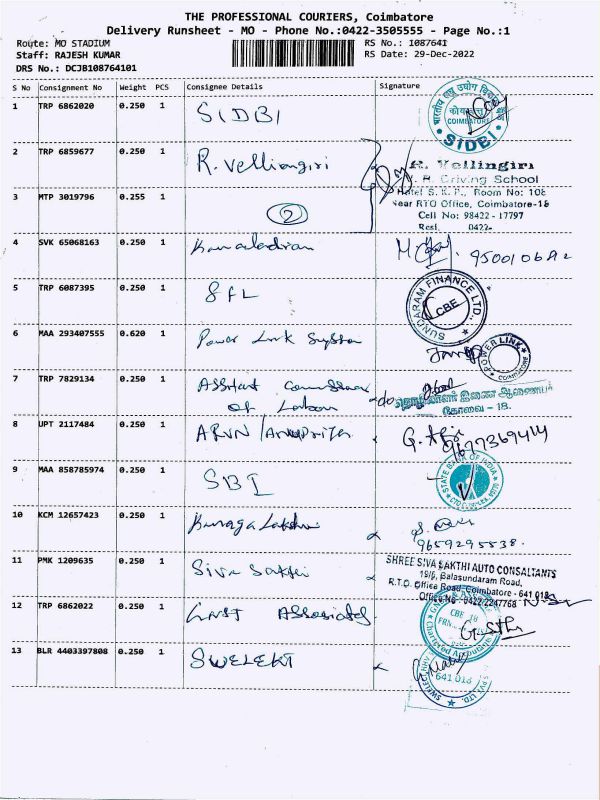 THE PROFESSIONAL COURIERS, Coimbatore
Delivery Runsheet - MO - Phone No.:0422-3505555 - Page No.:1
Route: MO STADIUM
RS No.: 1087641
Staff: RAJESH KUMAR
RS Date: 29-Dec-2022
DRS No.: DCJB108764101
S No Consignment No Weight PCS Consignee Details Signature
1 TRP 6862020 0.250 1 SIDBI
COIMBATORE
SIDBI
2 TRP 6859677 0.250 1 R. Velliangiri
R. Vellingiri
R. Driving School
3 MTP 3019796 0.255 1 2
Hotel S. K. P., Room No: 108
Near RTO Office, Coimbatore-18
Cell No: 98422 - 17797
Resi. 0422-
4 SVK 65068163 0.250 1
5 TRP 6087395 0.250 1 SFL
SUNDARAM FINANCE LTD.,
CBE
6 MAA 293407555 0.620 1 Power Link System
POWER LINK
COIMBATORE
7 TRP 7829134 0.250 1 Assistant Commissioner
of Labour
தொழிலாளர் இணை ஆணையர்
கோவை - 18.
8 UPT 2117484 0.250 1 ARUN
9677369414
9 MAA 858785974 0.250 1 SBI
STATE BANK OF INDIA
10 KCM 12657423 0.250 1
9659295538.
11 PMK 1209635 0.250 1 Siva Sakthi
SHREE SIVA SAKTHI AUTO CONSALTANTS
19/6, Balasundaram Road,
R.T.O. Office Road, Coimbatore - 641 018
Office No - 0422-2247768
12 TRP 6862022 0.250 1 Associates
CBE 18
Chartered Accountants
13 BLR 4403397808 0.250 1 SWELEKT
641 018